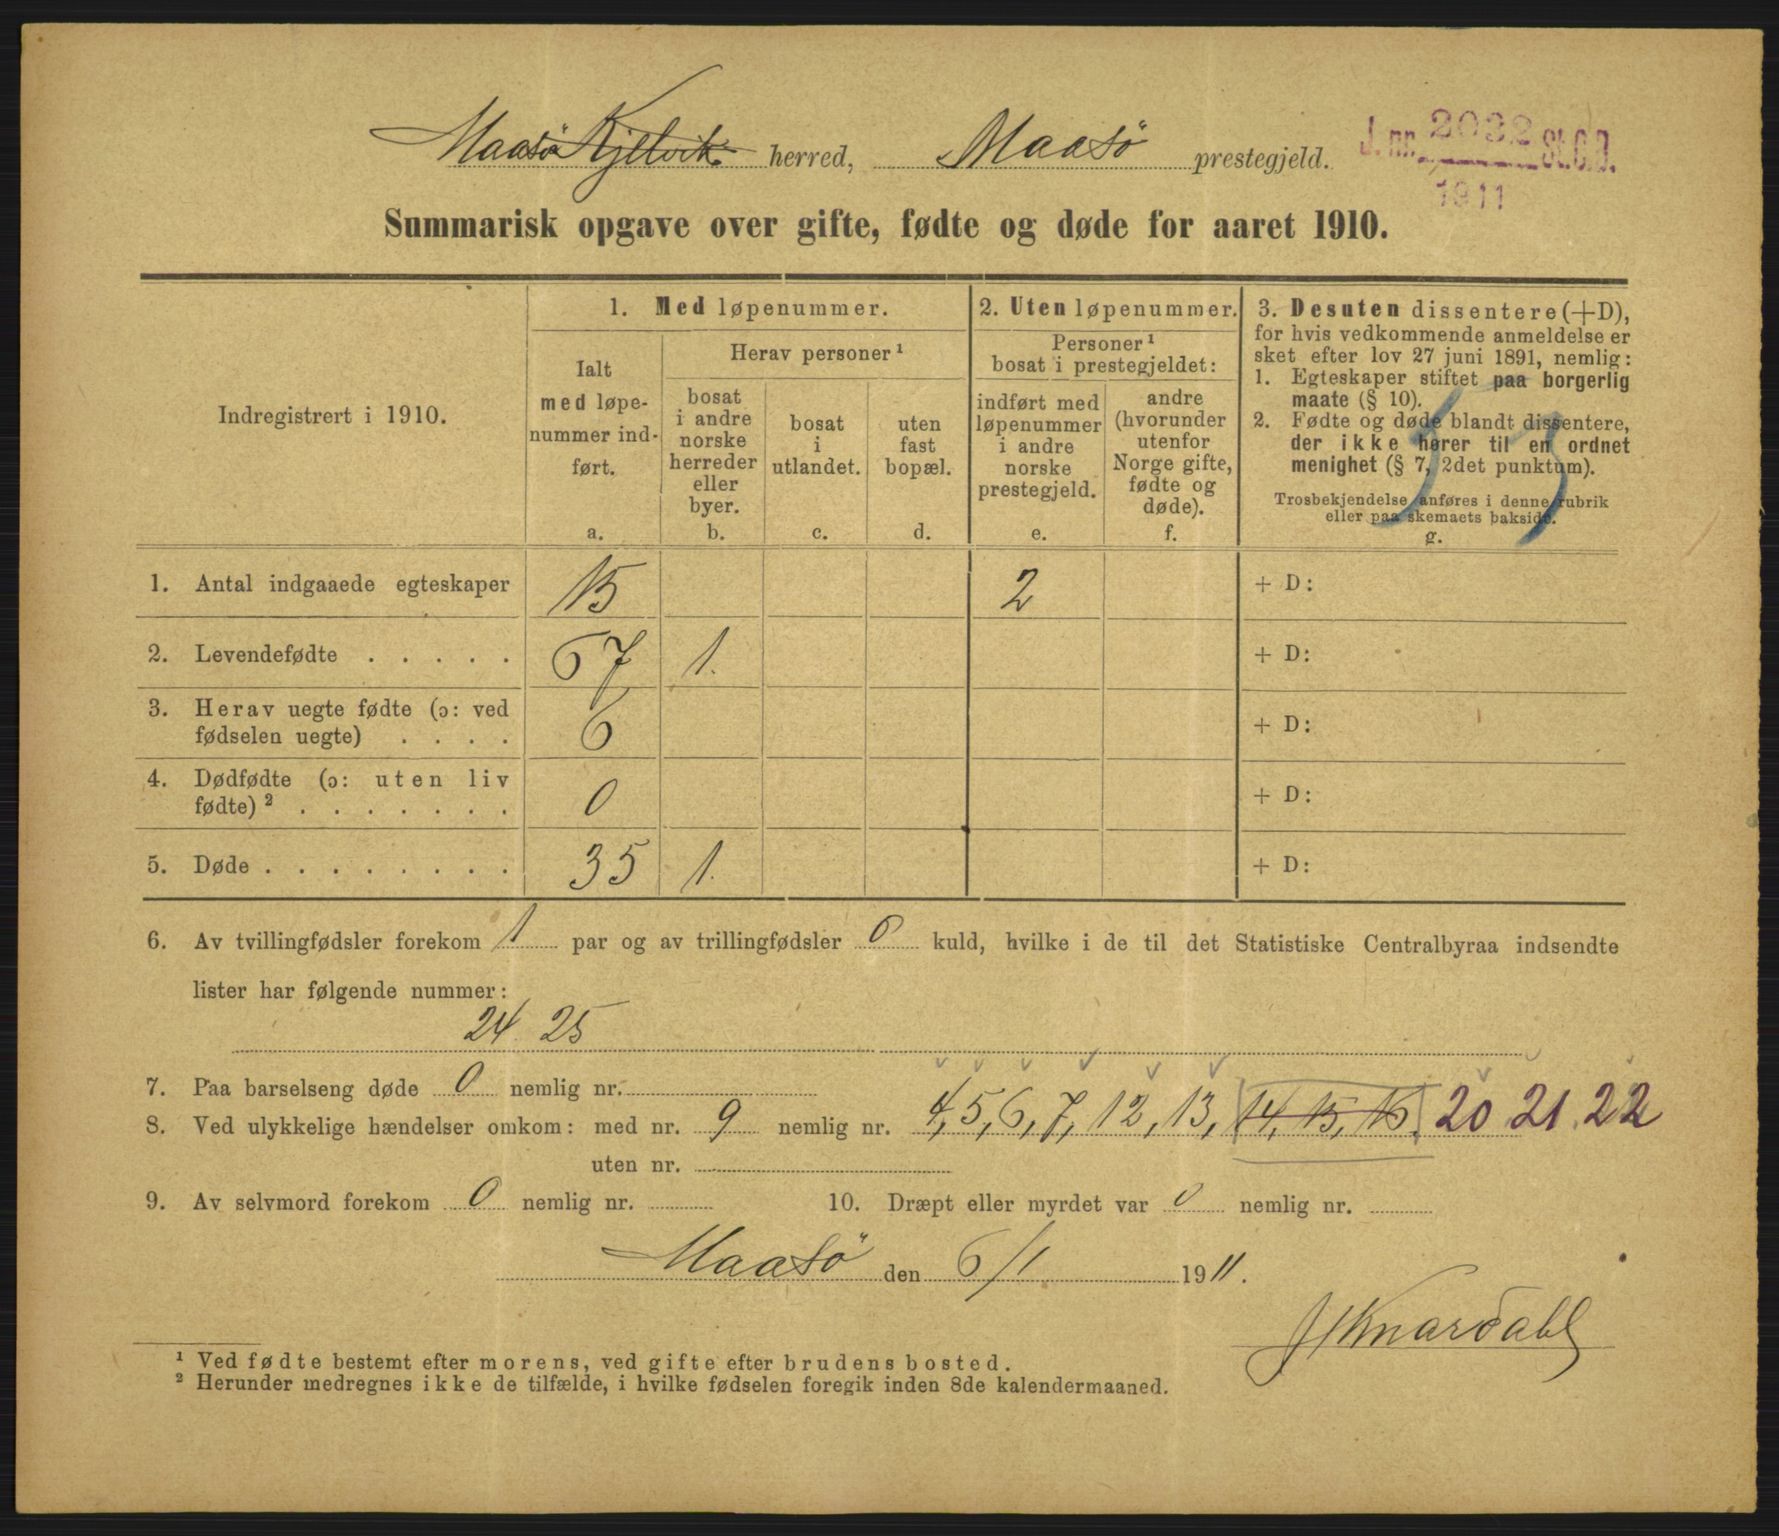 Maasø Kjelvik herred, Maasø prestegjeld.
J. nr. 2032 St.C.B.
1911
Summarisk opgave over gifte, fødte og døde for aaret 1910.
Indregistrert i 1910.
1. Med løpenummer.
Ialt med løpenummer indført.
a.
Herav personer ¹
bosat i andre norske herreder eller byer.
b.
bosat i utlandet.
c.
uten fast bopæl.
d.
2. Uten løpenummer.
Personer ¹ bosat i prestegjeldet:
indført med løpenummer i andre norske prestegjeld.
e.
andre (hvorunder utenfor Norge gifte, fødte og døde).
f.
3. Desuten dissentere (+D),
for hvis vedkommende anmeldelse er
sket efter lov 27 juni 1891, nemlig:
1. Egteskaper stiftet paa borgerlig
maate (§ 10).
2. Fødte og døde blandt dissentere,
der ikke hører til en ordnet
menighet (§ 7, 2det punktum).
Trosbekjendelse anføres i denne rubrik
eller paa skemaets bakside.
g.
1. Antal indgaaede egteskaper 15 2 + D:
2. Levendefødte . . . . . 67 1. + D:
3. Herav uegte fødte (ɔ: ved
fødselen uegte) . . . . 6 + D:
4. Dødfødte (ɔ: uten liv
fødte) ² . . . . . . . 0 + D:
5. Døde . . . . . . . . 35 1. + D:
6. Av tvillingfødsler forekom 1 par og av trillingfødsler 0 kuld, hvilke i de til det Statistiske Centralbyraa indsendte
lister har følgende nummer:
24. 25
7. Paa barselseng døde 0 nemlig nr.
8. Ved ulykkelige hændelser omkom: med nr. 9 nemlig nr. 4, 5, 6, 7, 12, 13, 14, 15, 16. 20 21. 22
uten nr.
9. Av selvmord forekom 0 nemlig nr. 10. Dræpt eller myrdet var 0 nemlig nr.
Maasø den 6/1. 1911.
J Knardahl
¹ Ved fødte bestemt efter morens, ved gifte efter brudens bosted.
² Herunder medregnes ikke de tilfælde, i hvilke fødselen foregik inden 8de kalendermaaned.